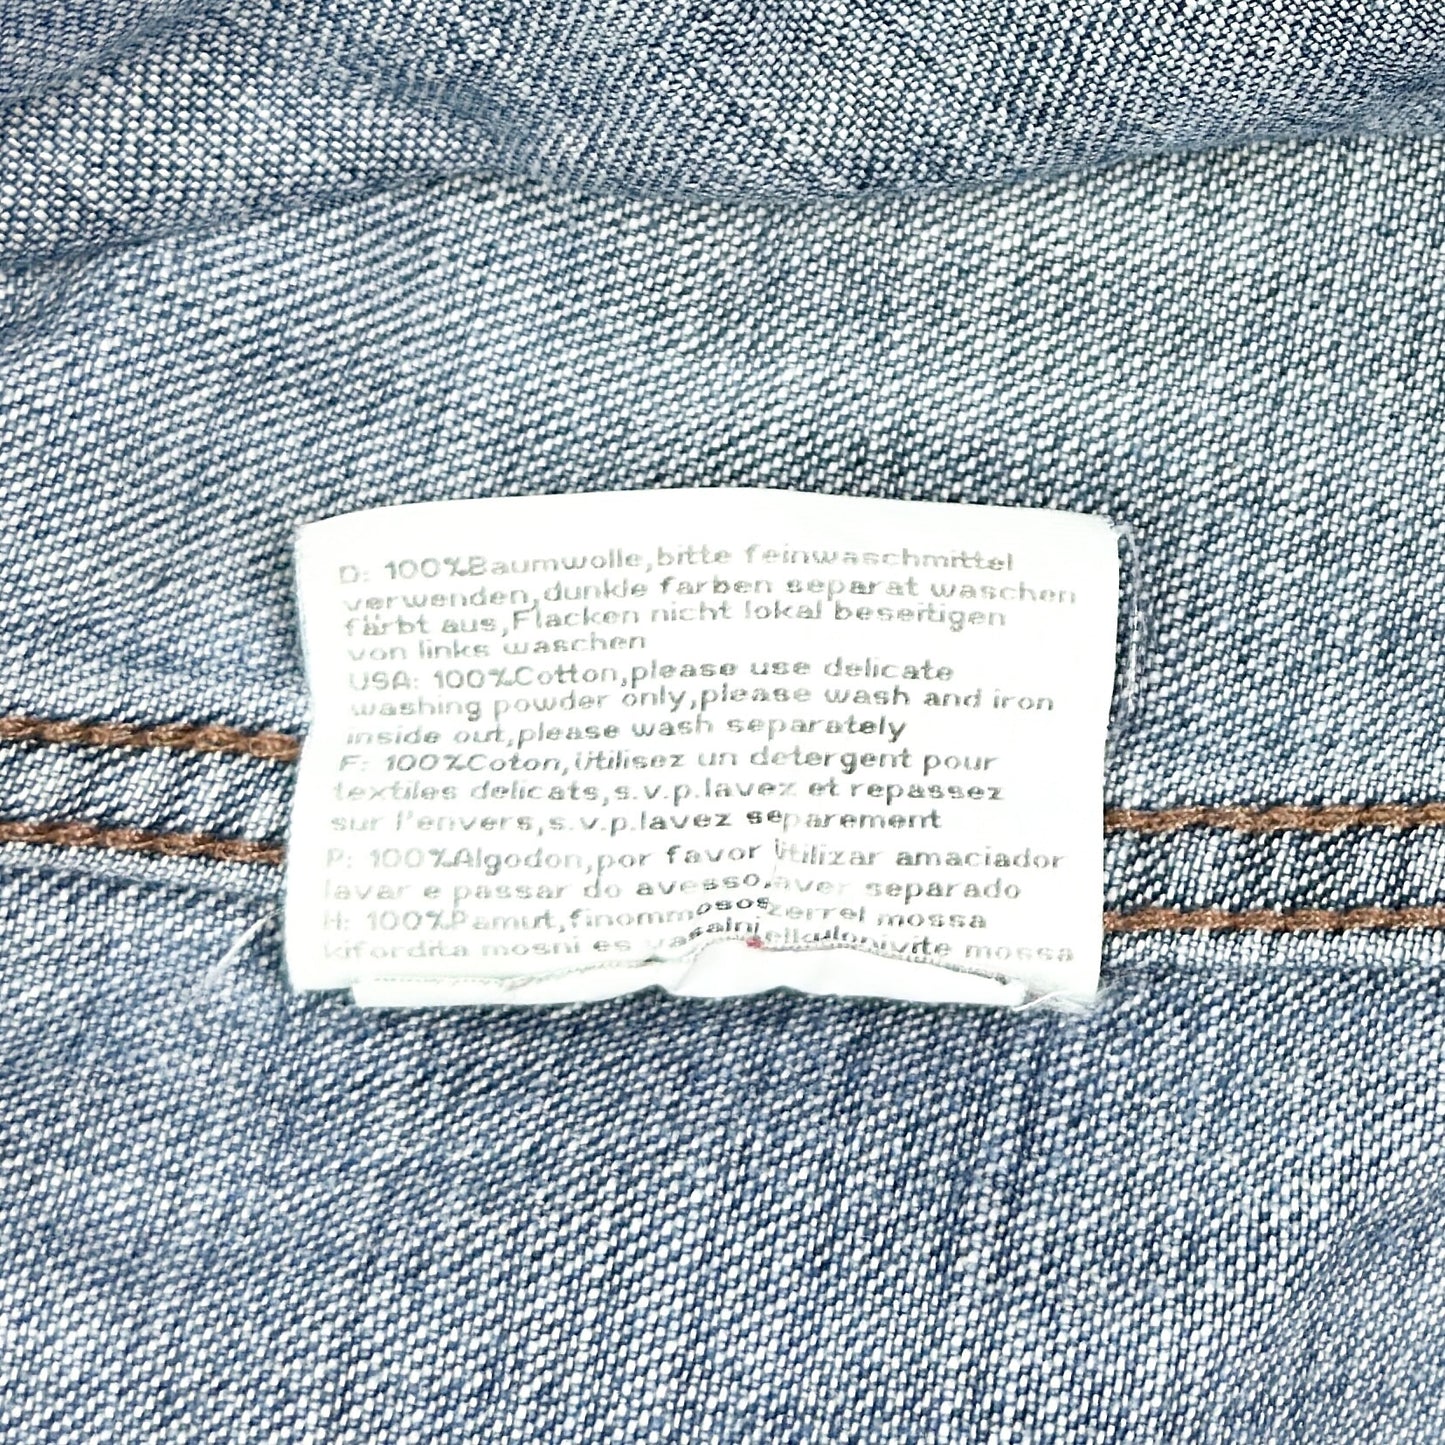 D: 100%Baumwolle,bitte feinwaschmittel
verwenden,dunkle farben separat waschen
färbt aus,Flacken nicht lokal beseitigen
von links waschen
USA: 100%Cotton,please use delicate
washing powder only,please wash and iron
inside out,please wash separately
F: 100%Coton,Utilisez un detergent pour
textiles delicats,s.v.p.lavez et repassez
sur l'envers,s.v.p.lavez separement
P: 100%Algodon,por favor Utilizar amaciador
lavar e passar do avesso, separado
H: 100%Pamut,finommosos mossa
kifordita mosni es mossa